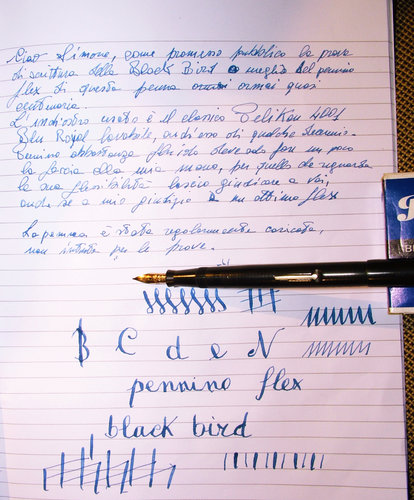 Ciao Simone, come promesso pubblico la prova
di scrittura della Black Bird o meglio del pennino
flex di questa penna ormai quasi
centenaria.
L'inchiostro usato è il classico Pelikan 4001
Blu Royal lavabile, anch'esso di qualche
abbastanza flessibile deve ado fare un poco
la faccia alla mia mano, per quello che riguarda
la sua flessibilità lascio giudicare a voi,
anche se a mio giudizio è un ottimo flex
La penna è stata regolarmente caricata,
non intinta per le prove.
B C d e N
pennino flex
black bird